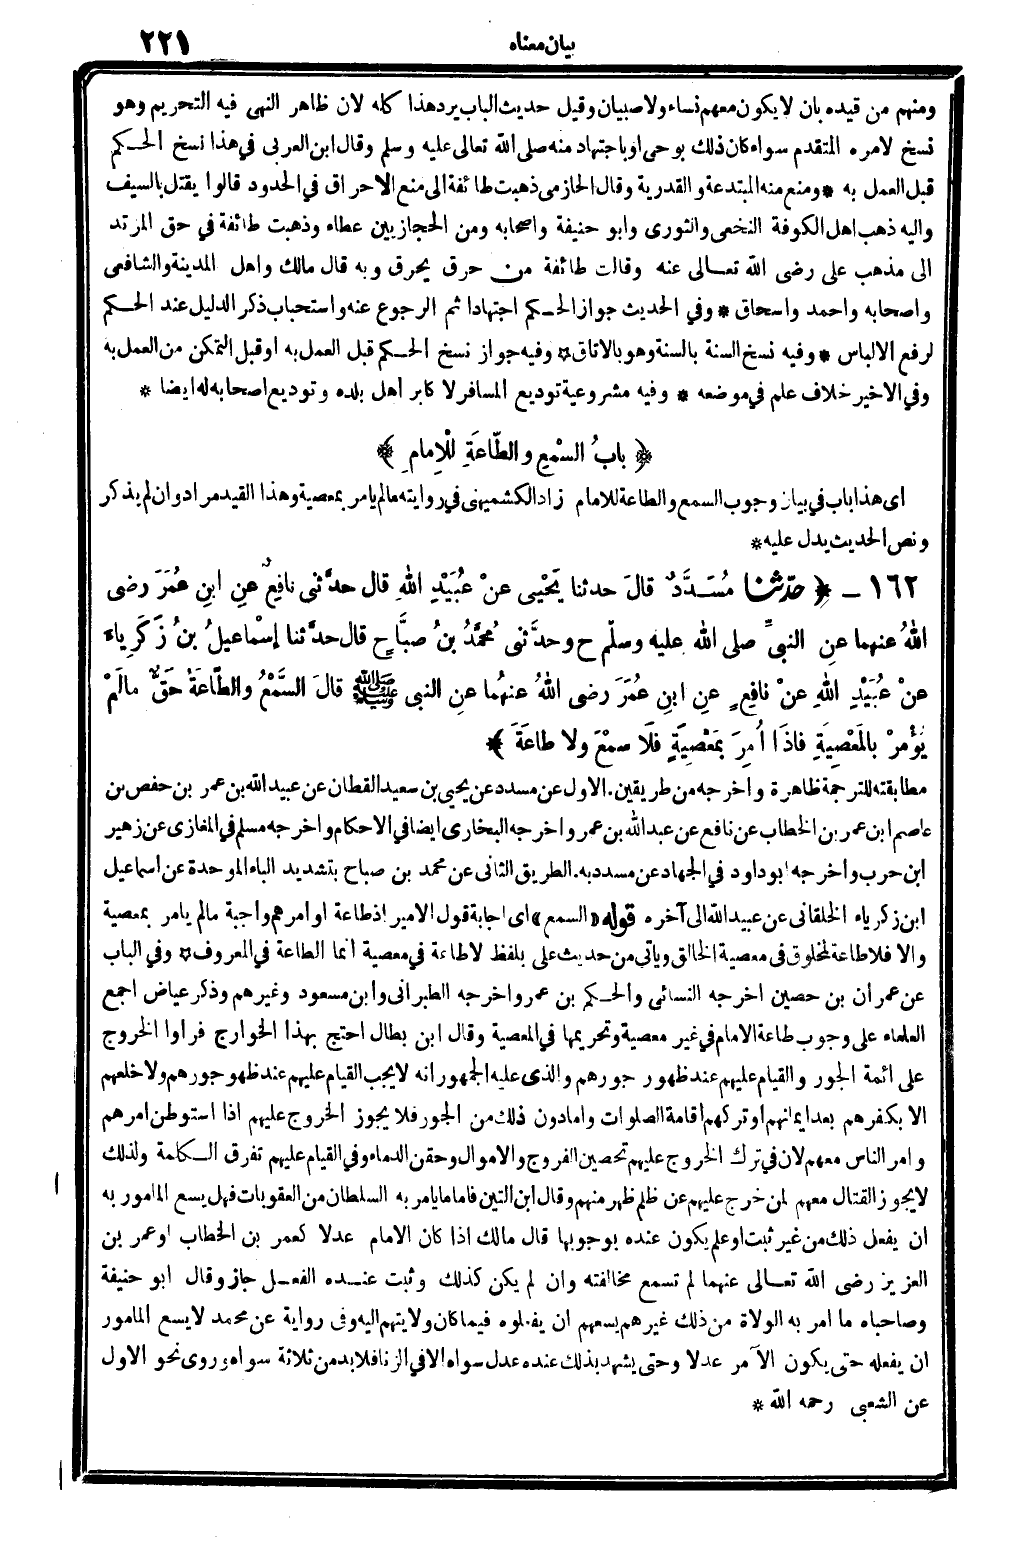 بيان معناه ٢٢١
ومنهم من قيده بان لا يكون معهم نساء ولا صبيان وقيل حديث الباب يرد هذا كله لان ظاهر النهى فيه التحريم وهو
نسخ لامره المتقدم سواء كان ذلك بوحى او باجتهاد منه صلى الله تعالى عليه وسلم وقال ابن العربى في هذا نسخ الحكم
قبل العمل به * ومنع منه المبتدعة والقدرية وقال الحازمى ذهبت طائفة الى منع الاحراق في الحدود قالوا يقتل بالسيف
واليه ذهب اهل الكوفة النخعى والثورى وابو حنيفة واصحابه ومن الحجازيين عطاء وذهبت طائفة في حق المرتد
الى مذهب على رضى الله تعالى عنه وقالت طائفة من حرق يحرق وبه قال مالك واهل المدينة والشافعى
واصحابه واحمد واسحاق * وفي الحديث جواز الحكم اجتهادا ثم الرجوع عنه واستحباب ذكر الدليل عند الحكم
لرفع الالباس * وفيه نسخ السنة بالسنة وهو بالاتاق * وفيه جواز نسخ الحكم قبل العمل به او قبل التمكن من العمل به
وفي الاخير خلاف علم في موضعه * وفيه مشروعية توديع المسافر لا كابر اهل بلده وتوديع اصحابه له ايضا *
﴿ بابُ السَّمْعِ والطَّاعَةِ لِلْإِمامِ ﴾
اى هذا باب في بيان وجوب السمع والطاعة للامام زاد الكشميهنى في روايته مالم يامر بمعصية وهذا القيد مراد وان لم يذكر
ونص الحديث يدل عليه *
١٦٢ - ﴿ حدّثنا مُسَدَّدٌ قالَ حدثنا يَحْيى عنْ عُبَيْدِ اللهِ قال حدَّثنى نافِعٌ عنِ ابنِ عُمَرَ رضى
اللهُ عنهما عنِ النبيِّ صلى الله عليه وسلّم ح وحدَّثنى مُحمَّدُ بنُ صبَّاحٍ قال حدَّثنا إسْماعيلُ بنُ زَكَرِياءَ
عنْ عُبَيْدِ اللهِ عنْ نافِعٍ عنِ ابنِ عُمَرَ رضى اللهُ عنهُما عنِ النبى ﷺ قالَ السَّمْعُ والطَّاعَةُ حَقٌّ مالَمْ
يُؤْمرْ بالمَعْصِيَةِ فاذَا أُمِرَ بمَعْصِيَةٍ فلَا سمْعَ ولا طاعَةَ ﴾ *
مطابقته للترجمة ظاهرة واخرجه من طريقين. الاول عن مسدد عن يحيى بن سعيد القطان عن عبيد الله بن عمر بن حفص بن
عاصم ابن عمر بن الخطاب عن نافع عن عبد الله بن عمر واخرجه البخارى ايضا في الاحكام واخرجه مسلم في المغازى عن زهير
ابن حرب واخرجه ابو داود في الجهاد عن مسدد به. الطريق الثانى عن محمد بن صباح بتشديد الباء الموحدة عن اسماعيل
ابن زكرياء الخلقانى عن عبيد الله الى آخره قوله «السمع» اى اجابة قول الامير اذ طاعة اوامرهم واجبة مالم يامر بمعصية
والا فلا طاعة لمخلوق فى معصية الخالق وياتى من حديث على بلفظ لا طاعة في معصية انما الطاعة في المعروف * وفي الباب
عن عمران بن حصين اخرجه النسائى والحكم بن عمر واخرجه الطبرانى وابن مسعود وغيرهم وذكر عياض اجمع
العلماء على وجوب طاعة الامام في غير معصية وتحريمها في المعصية وقال ابن بطال احتج بهذا الخوارج فراوا الخروج
على ائمة الجور والقيام عليهم عند ظهور جورهم والذى عليه الجمهور انه لا يجب القيام عليهم عند ظهو جورهم ولا خلعهم
الا بكفرهم بعد ايمانهم او تركهم اقامة الصلوات وامادون ذلك من الجور فلا يجوز الخروج عليهم اذا استوطن امرهم
وامر الناس معهم لان في ترك الخروج عليهم تحصين الفروج والاموال وحقن الدماء وفي القيام عليهم تفرق الكلمة ولذلك
لا يجوز القتال معهم لمن خرج عليهم عن ظلم ظهر منهم وقال ابن التين فاما ما يامر به السلطان من العقوبات فهل يسع المامور به
ان يفعل ذلك من غير ثبت او علم يكون عنده بوجوبها قال مالك اذا كان الامام عدلا كعمر بن الخطاب او عمر بن
العزيز رضى الله تعالى عنهما لم تسمع مخالفته وان لم يكن كذلك وثبت عنده الفعل جاز وقال ابو حنيفة
وصاحباه ما امر به الولاة من ذلك غيرهم يسعهم ان يفعلوه فيما كان ولايتهم اليه وفى رواية عن محمد لا يسع المامور
ان يفعله حتى يكون الآمر عدلا وحتى يشهد بذلك عنده عدل سواه الا في الزنا فلا بد من ثلاثة سواه وروى نحو الاول
عن الشعبى رحمه الله *